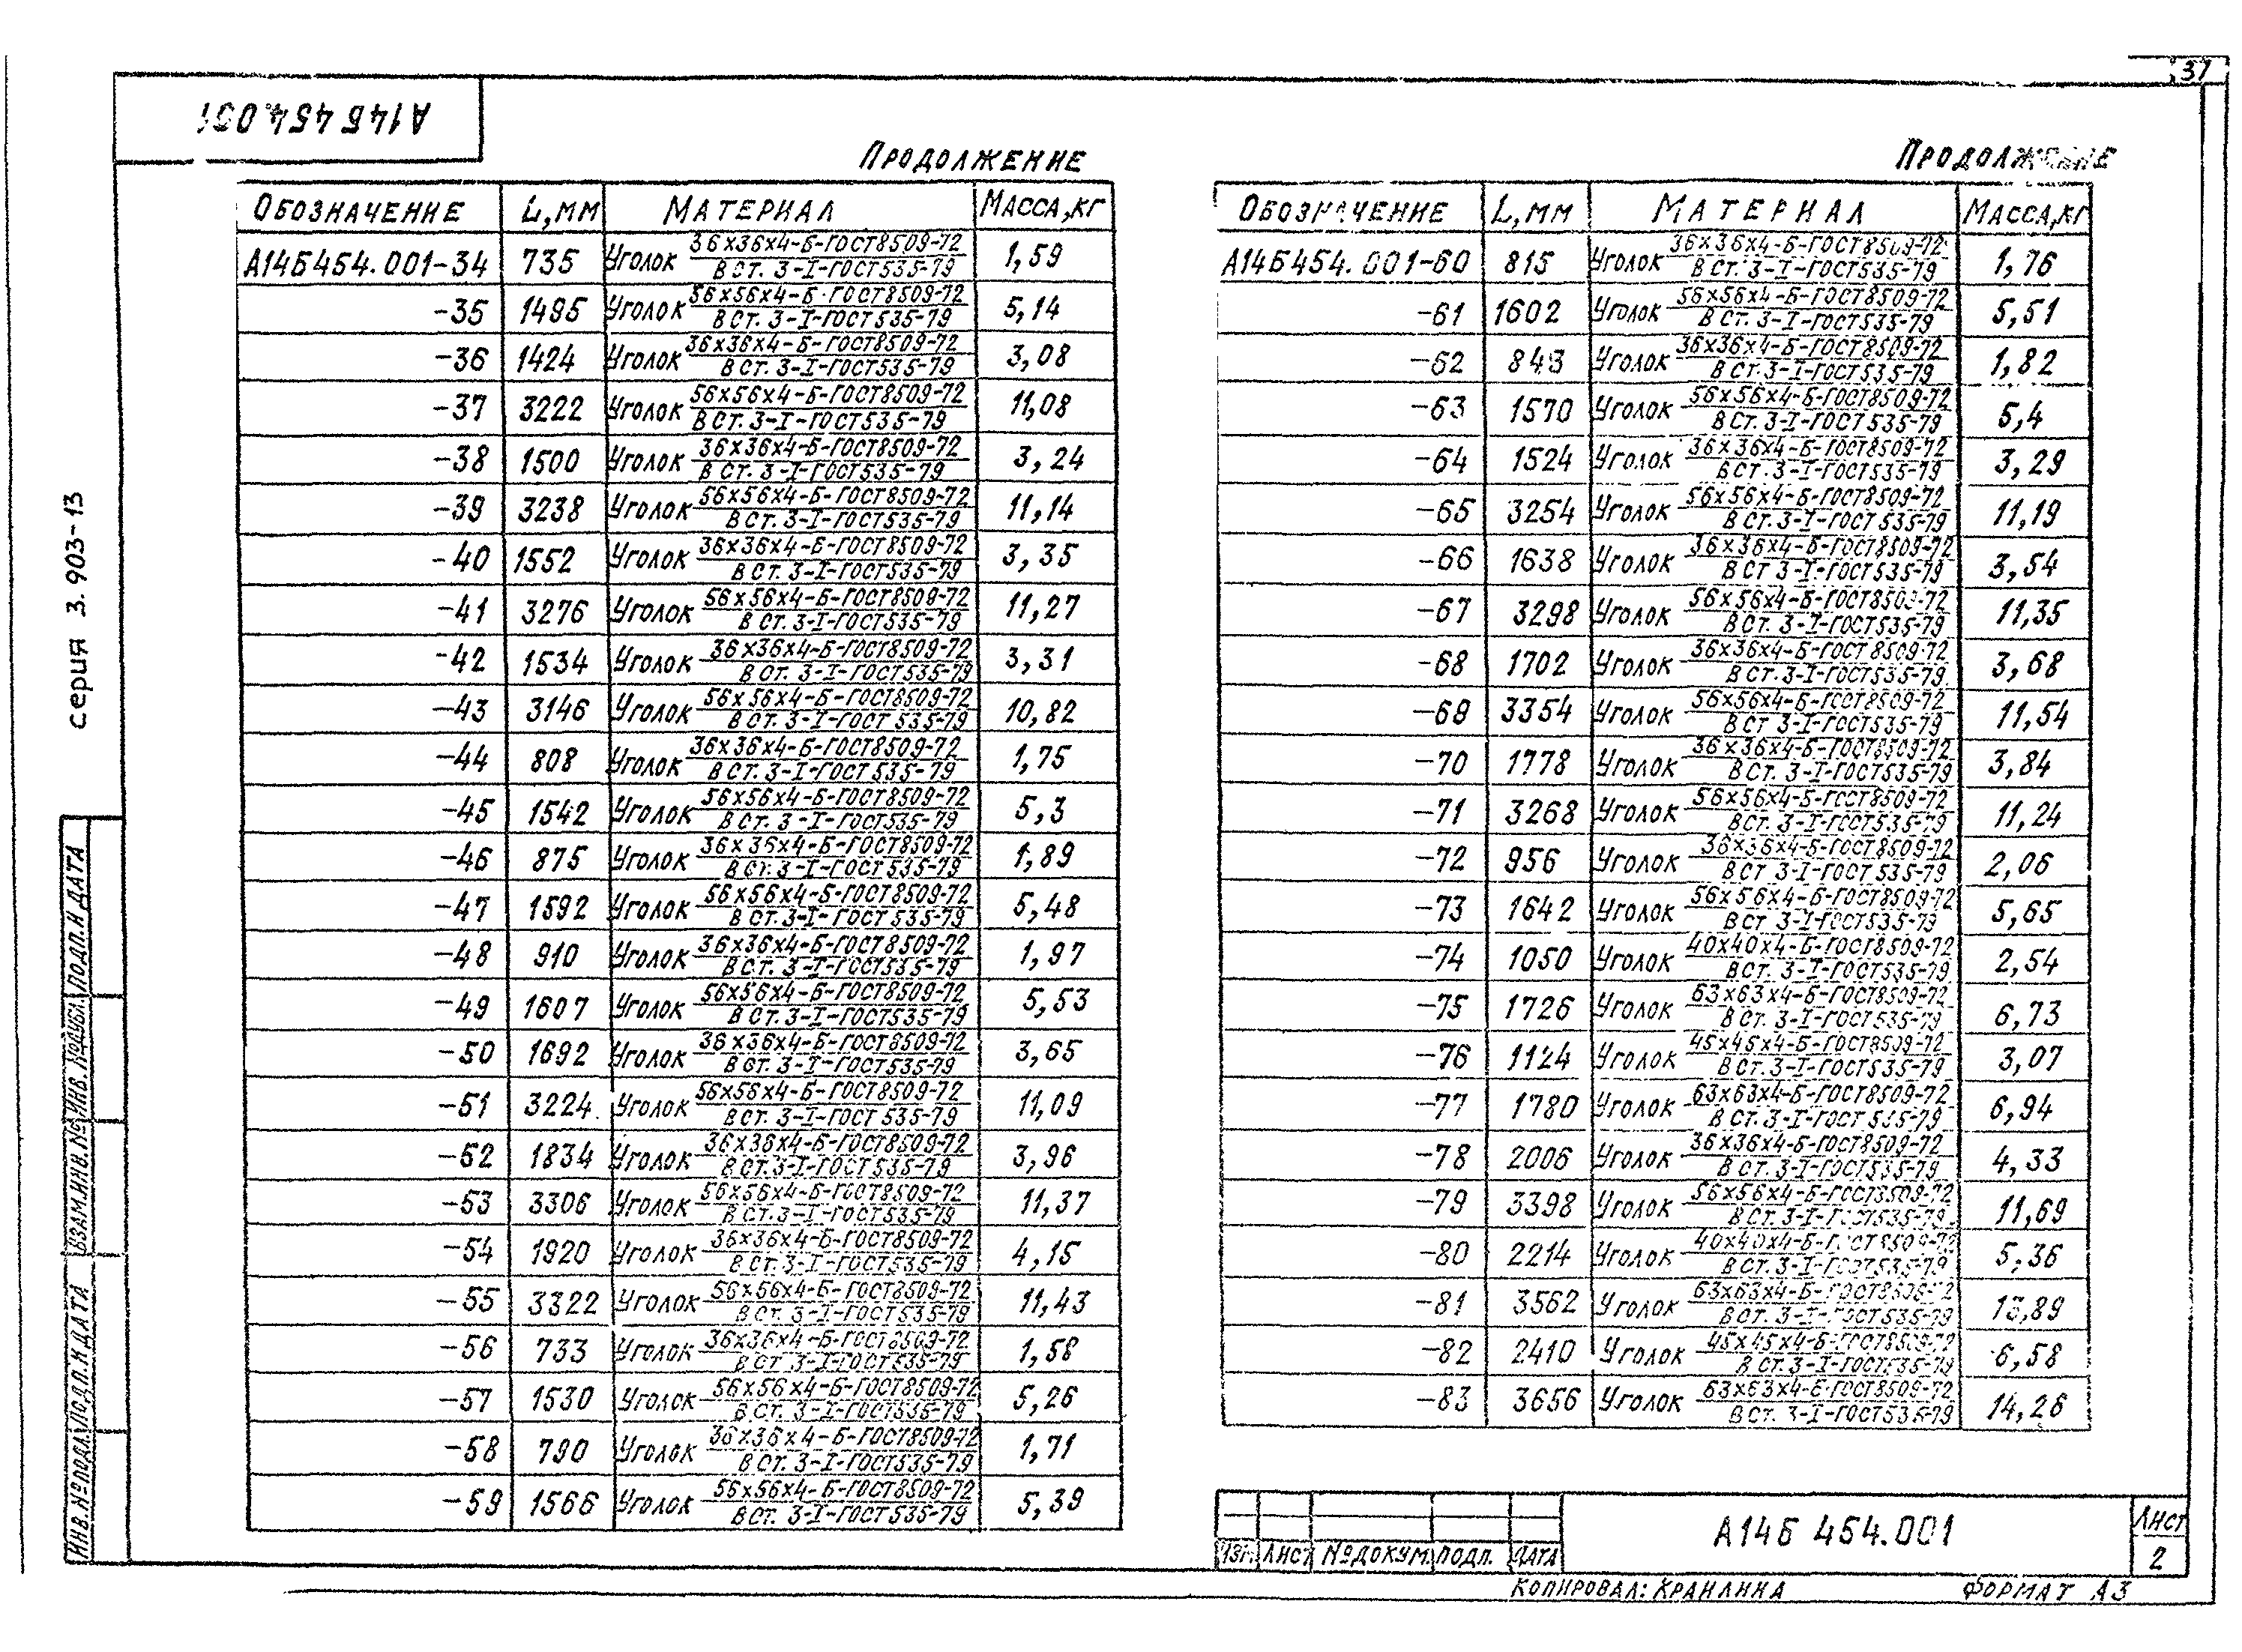 37
А14Б 454.001
Продолжение
Обозначение L,мм Материал Масса,кг
А14Б454.001-34 735 Уголок 36х36х4-Б-ГОСТ8509-72 / В Ст. 3-I-ГОСТ535-79 1,59
-35 1495 Уголок 56х56х4-Б-ГОСТ8509-72 / В Ст. 3-I-ГОСТ535-79 5,14
-36 1424 Уголок 36х36х4-Б-ГОСТ8509-72 / В Ст. 3-I-ГОСТ535-79 3,08
-37 3222 Уголок 56х56х4-Б-ГОСТ8509-72 / В Ст. 3-I-ГОСТ535-79 11,08
-38 1500 Уголок 36х36х4-Б-ГОСТ8509-72 / В Ст. 3-I-ГОСТ535-79 3,24
-39 3238 Уголок 56х56х4-Б-ГОСТ8509-72 / В Ст. 3-I-ГОСТ535-79 11,14
-40 1552 Уголок 36х36х4-Б-ГОСТ8509-72 / В Ст. 3-I-ГОСТ535-79 3,35
-41 3276 Уголок 56х56х4-Б-ГОСТ8509-72 / В Ст. 3-I-ГОСТ535-79 11,27
-42 1534 Уголок 36х36х4-Б-ГОСТ8509-72 / В Ст. 3-I-ГОСТ535-79 3,31
-43 3146 Уголок 56х56х4-Б-ГОСТ8509-72 / В Ст. 3-I-ГОСТ 535-79 10,82
-44 808 Уголок 36х36х4-Б-ГОСТ8509-72 / В Ст. 3-I-ГОСТ 535-79 1,75
-45 1542 Уголок 56х56х4-Б-ГОСТ8509-72 / В Ст. 3-I-ГОСТ535-79 5,3
-46 875 Уголок 36х36х4-Б-ГОСТ8509-72 / В Ст. 3-I-ГОСТ535-79 1,89
-47 1592 Уголок 56х56х4-Б-ГОСТ8509-72 / В Ст. 3-I-ГОСТ 535-79 5,48
-48 910 Уголок 36х36х4-Б-ГОСТ8509-72 / В Ст. 3-I-ГОСТ535-79 1,97
-49 1607 Уголок 56х56х4-Б-ГОСТ8509-72 / В Ст. 3-I-ГОСТ535-79 5,53
-50 1692 Уголок 36х36х4-Б-ГОСТ8509-72 / В Ст. 3-I-ГОСТ535-79 3,65
-51 3224 Уголок 56х56х4-Б-ГОСТ8509-72 / В Ст. 3-I-ГОСТ 535-79 11,09
-52 1834 Уголок 36х36х4-Б-ГОСТ8509-72 / В Ст. 3-I-ГОСТ 535-79 3,96
-53 3306 Уголок 56х56х4-Б-ГОСТ8509-72 / В Ст. 3-I-ГОСТ535-79 11,37
-54 1920 Уголок 36х36х4-Б-ГОСТ8509-72 / В Ст. 3-I-ГОСТ535-79 4,15
-55 3322 Уголок 56х56х4-Б-ГОСТ8509-72 / В Ст. 3-I-ГОСТ535-79 11,43
-56 733 Уголок 36х36х4-Б-ГОСТ8509-72 / В Ст 3-I-ГОСТ535-79 1,58
-57 1530 Уголок 56х56х4-Б-ГОСТ8509-72 / В Ст. 3-I-ГОСТ535-79 5,26
-58 790 Уголок 36х36х4-Б-ГОСТ8509-72 / В Ст. 3-I-ГОСТ535-79 1,71
-59 1566 Уголок 56х56х4-Б-ГОСТ8509-72 / В Ст. 3-I-ГОСТ 535-79 5,39
Продолжение
Обозначение L,мм Материал Масса,кг
А14Б454.001-60 815 Уголок 36х36х4-Б-ГОСТ8509-72 / В Ст. 3-I-ГОСТ535-79 1,76
-61 1602 Уголок 56х56х4-Б-ГОСТ8509-72 / В Ст. 3-I-ГОСТ535-79 5,51
-62 843 Уголок 36х36х4-Б-ГОСТ8509-72 / В Ст. 3-I-ГОСТ535-79 1,82
-63 1570 Уголок 56х56х4-Б-ГОСТ8509-72 / В Ст. 3-I-ГОСТ535-79 5,4
-64 1524 Уголок 36х36х4-Б-ГОСТ8509-72 / В Ст. 3-I-ГОСТ535-79 3,29
-65 3254 Уголок 56х56х4-Б-ГОСТ8509-72 / В Ст. 3-I-ГОСТ 535-79 11,19
-66 1638 Уголок 36х36х4-Б-ГОСТ8509-72 / В Ст 3-I-ГОСТ535-79 3,54
-67 3298 Уголок 56х56х4-Б-ГОСТ8509-72 / В Ст. 3-I-ГОСТ535-79 11,35
-68 1702 Уголок 36х36х4-Б-ГОСТ 8509-72 / В Ст. 3-I-ГОСТ535-79 3,68
-69 3354 Уголок 56х56х4-Б-ГОСТ8509-72 / В Ст 3-I-ГОСТ535-79 11,54
-70 1778 Уголок 36х36х4-Б-ГОСТ8509-72 / В Ст. 3-I-ГОСТ535-79 3,84
-71 3268 Уголок 56х56х4-Б-ГОСТ8509-72 / В Ст. 3-I-ГОСТ535-79 11,24
-72 956 Уголок 36х36х4-Б-ГОСТ8509-72 / В Ст 3-I-ГОСТ 535-79 2,06
-73 1642 Уголок 56х56х4-Б-ГОСТ8509-72 / В Ст 3-I-ГОСТ535-79 5,65
-74 1050 Уголок 40х40х4-Б-ГОСТ8509-72 / В Ст. 3-I-ГОСТ535-79 2,54
-75 1726 Уголок 63х63х4-Б-ГОСТ8509-72 / В Ст. 3-I-ГОСТ535-79 6,73
-76 1124 Уголок 45х45х4-Б-ГОСТ8509-72 / В Ст. 3-I-ГОСТ535-79 3,07
-77 1780 Уголок 63х63х4-Б-ГОСТ8509-72 / В Ст. 3-I-ГОСТ 535-79 6,94
-78 2006 Уголок 36х36х4-Б-ГОСТ8509-72 / В Ст. 3-I-ГОСТ535-79 4,33
-79 3398 Уголок 56х56х4-Б-ГОСТ8509-72 / В Ст. 3-I-ГОСТ535-79 11,69
-80 2214 Уголок 40х40х4-Б-ГОСТ8509-72 / В Ст. 3-I-ГОСТ535-79 5,36
-81 3562 Уголок 63х63х4-Б-ГОСТ8509-72 / В Ст. 3-I-ГОСТ535-79 13,89
-82 2410 Уголок 45х45х4-Б-ГОСТ8509-72 / В Ст. 3-I-ГОСТ535-79 6,58
-83 3656 Уголок 63х63х4-Б-ГОСТ8509-72 / В Ст. 3-I-ГОСТ535-79 14,26
серия 3.903-13
Инв.№подл. Подп.и дата Взам.инв.№ Инв.№дубл. Подп.и дата
Изм. Лист №докум. Подп. Дата
А14Б 454.001
Лист
2
Копировал: Кранлина
Формат А3